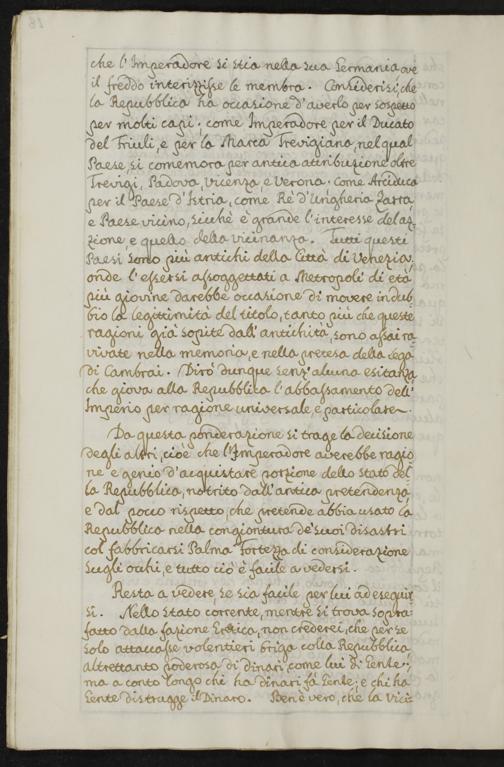 che l'Imperadore si stia nella sua Germania ove
il freddo interizzisse le membra. Considerisi, che
la Repubblica ha occasione d'averlo per sospetto
per molti capi. come Imperadore per il Ducato
del Friuli, e per la Marca Trevigiana, nel qual
Paese, si comemora per antica attribuzione oltre
Trevigi, Padova, Vicenza, e Verona. Come Arciduca
per il Paese d'Istria, come Rè d'Ungheria Zarra
e Paese vicino, sicchè è grande l'interesse dell'az
zione, e quello della vicinanza. Tutti questi
Paesi sono più antichi della Città di Venezia,
onde l'essersi assoggettati a Metropoli di età
più giovine darebbe occasione di movere in dub:
bio la legittimità del titolo, tanto più che queste
ragioni già sopite dall'antichità, sono assai ra:
vivate nella memoria, e nella pretesa della Lega
di Cambrai. Dirò dunque senz'alcuna esitanza
che giova alla Repubblica l'abbassamento dell'
Imperio per ragione universale, e particolare.
Da questa ponderazione si trage la decisione
degli altri, cioè che l'Imperadore averebbe ragio
ne e genio d'acquistare porzione dello Stato del
la Repubblica, notrito dall'antica pretendenza
e dal poco rispetto, che pretende abbia usato la
Repubblica nella congiontura de suoi disastri
col fabbricarsi Palma Fortezza di considerazione
sugli occhi, e tutto ciò è facile a vedersi.
Resta a vedere, se sia facile per lui ad eseguir
si. Nello Stato corrente, mentre si trova sopra:
fatto dalla fazione Eretica, non crederei, che per se
solo attaccasse volentieri briga colla Repubblica
altrettanto poderosa di dinari, come lui di Gente,
ma a conto longo chi ha dinari fà Gente, e chi ha
Gente distrugge il Dinaro. Ben è vero, che la Vici: